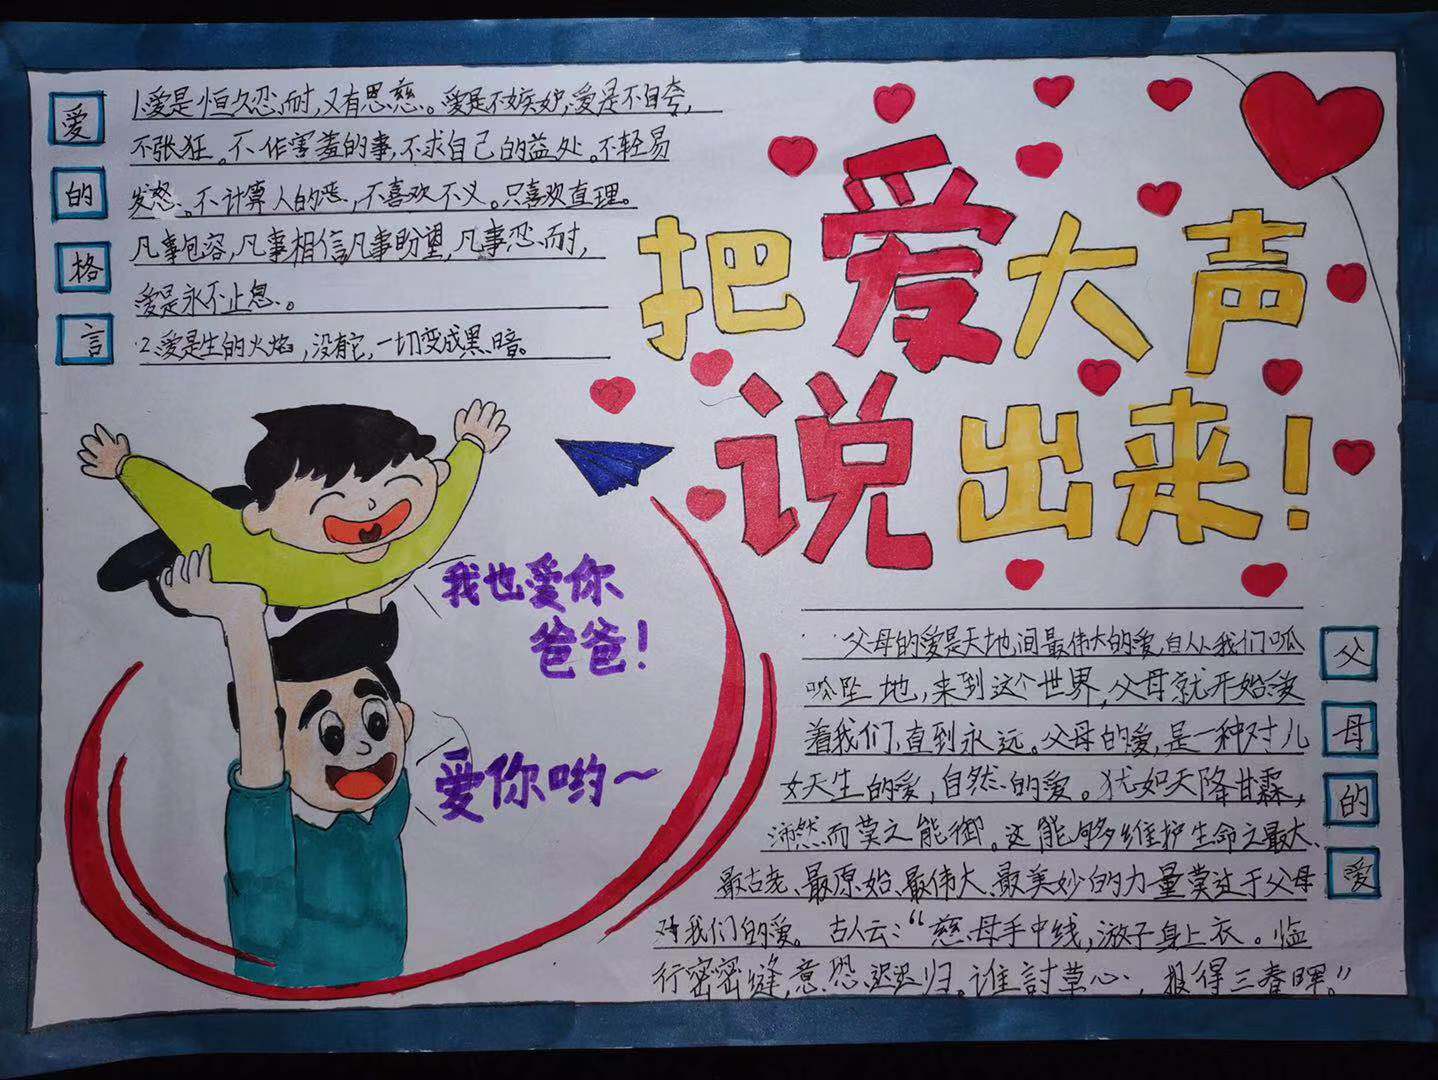 爱的格言
1.爱是恒久忍耐,又有恩慈。爱是不嫉妒,爱是不自夸,
不张狂。不作害羞的事,不求自己的益处。不轻易
发怒。不计算人的恶,不喜欢不义。只喜欢真理。
凡事包容,凡事相信,凡事盼望,凡事忍耐,
爱是永不止息。
2.爱是生的火焰,没有它,一切变成黑暗。
把爱大声
说出来!
我也爱你
爸爸!
爱你哟~
父母的爱
父母的爱是天地间最伟大的爱,自从我们呱
呱坠地,来到这个世界,父母就开始爱
着我们,直到永远。父母的爱,是一种对儿
女天生的爱,自然的爱。犹如天降甘霖,
沛然而莫之能御。这能够维护生命之最大、
最古老、最原始、最伟大、最美妙的力量莫过于父母
对我们的爱。古人云:“慈母手中线,游子身上衣。临
行密密缝,意恐迟迟归。谁討草心,报得三春晖。”